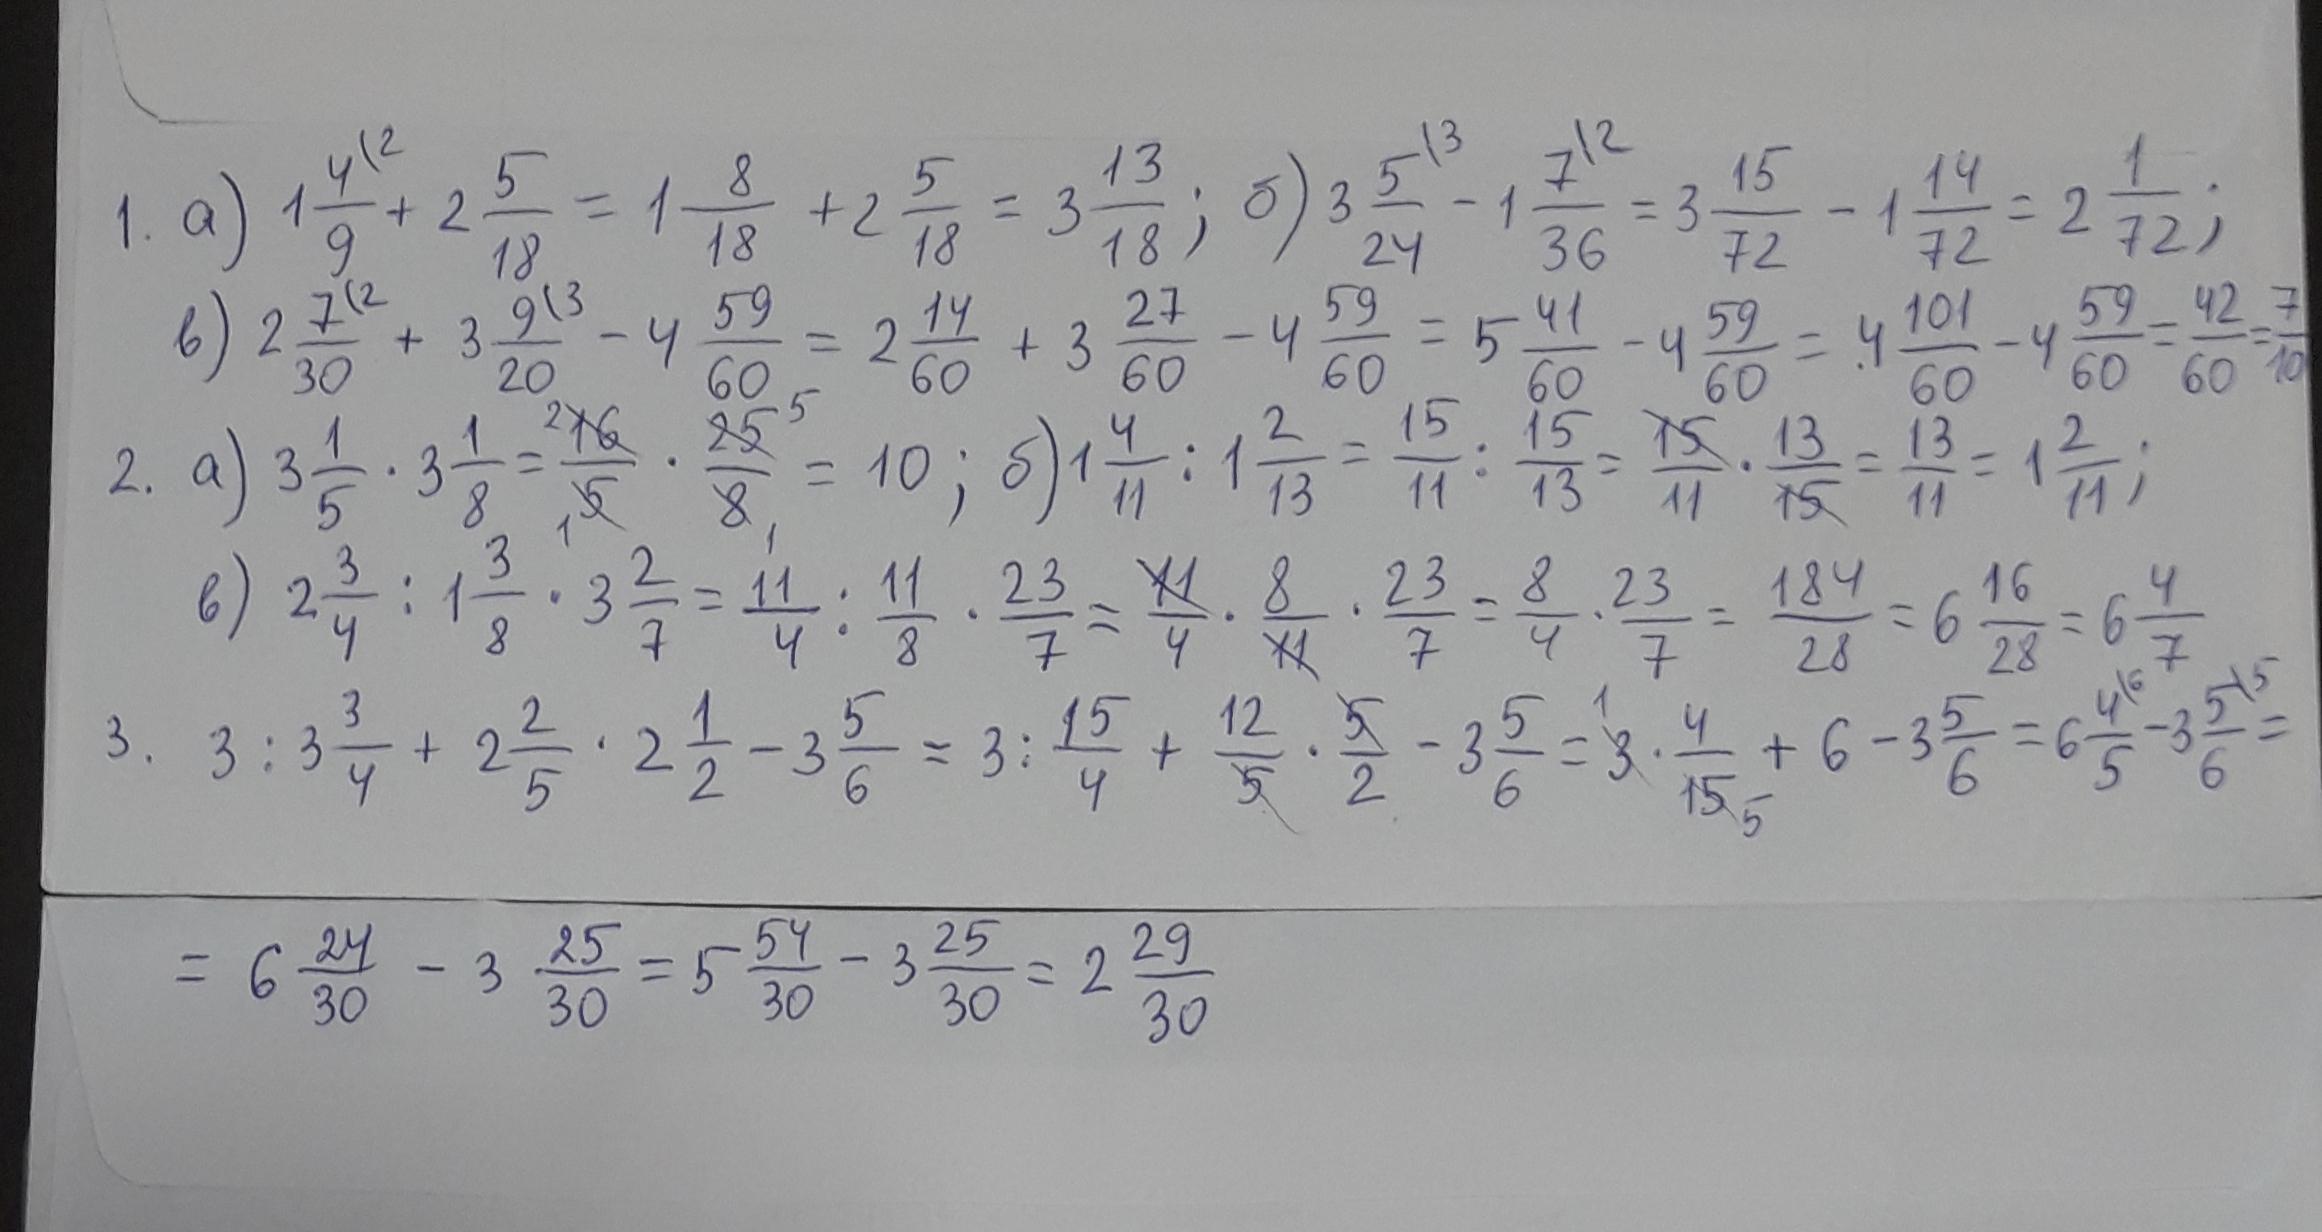 1. а) 1 4\2/9 + 2 5/18 = 1 8/18 + 2 5/18 = 3 13/18; б) 3 5\3/24 - 1 7\2/36 = 3 15/72 - 1 14/72 = 2 1/72;
в) 2 7\2/30 + 3 9\3/20 - 4 59/60 = 2 14/60 + 3 27/60 - 4 59/60 = 5 41/60 - 4 59/60 = 4 101/60 - 4 59/60 = 42/60 = 7/10
2. а) 3 1/5 · 3 1/8 = 2 16/5 1 · 25 5/8 1 = 10; б) 1 4/11 : 1 2/13 = 15/11 : 15/13 = 15/11 · 13/15 = 13/11 = 1 2/11;
в) 2 3/4 : 1 3/8 · 3 2/7 = 11/4 : 11/8 · 23/7 = 11/4 · 8/11 · 23/7 = 8/4 · 23/7 = 184/28 = 6 16/28 = 6 4/7
3. 3 : 3 3/4 + 2 2/5 · 2 1/2 - 3 5/6 = 3 : 15/4 + 12/5 · 5/2 - 3 5/6 = 1 3 · 4/15 5 + 6 - 3 5/6 = 6 4\6/5 - 3 5\5/6 =
= 6 24/30 - 3 25/30 = 5 54/30 - 3 25/30 = 2 29/30